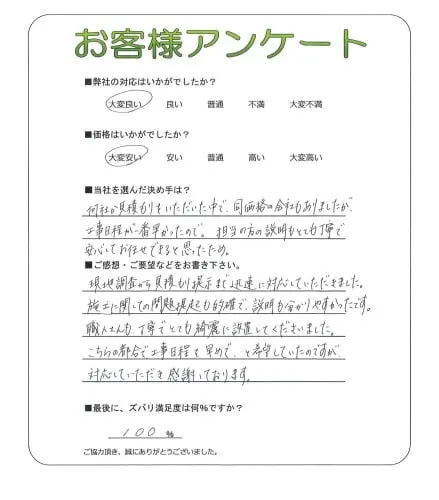 お客様アンケート
■弊社の対応はいかがでしたか？
大変良い 良い 普通 不満 大変不満
■価格はいかがでしたか？
大変安い 安い 普通 高い 大変高い
■当社を選んだ決め手は？
何社か見積もりをいただいた中で、同価格の会社もありましたが、
工事日程が一番早かったので。担当の方の説明もとても丁寧で
安心してお任せできると思ったため。
■ご感想・ご要望などをお書き下さい。
現地調査から見積もり提示まで迅速に対応していただきました。
施工に関しての問題提起も的確で、説明も分かりやすかったです。
職人さんも丁寧でとても綺麗に設置してくださいました。
こちらの都合で工事日程を早めで、と希望していたのですが、
対応していただき感謝しております。
■最後に、ズバリ満足度は何%ですか？
100 %
ご協力頂き、誠にありがとうございました。